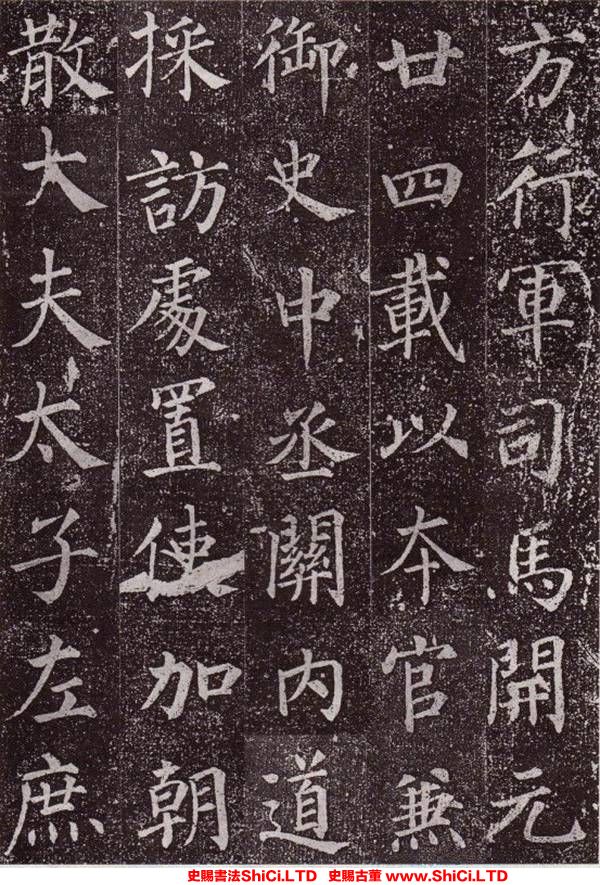 方行軍司馬開元
廿四載以本官兼
御史中丞關內道
採訪處置使加朝
散大夫太子左庶
史賜書法ShiCi.LTD 史賜古董 www.ShiCi.LTD